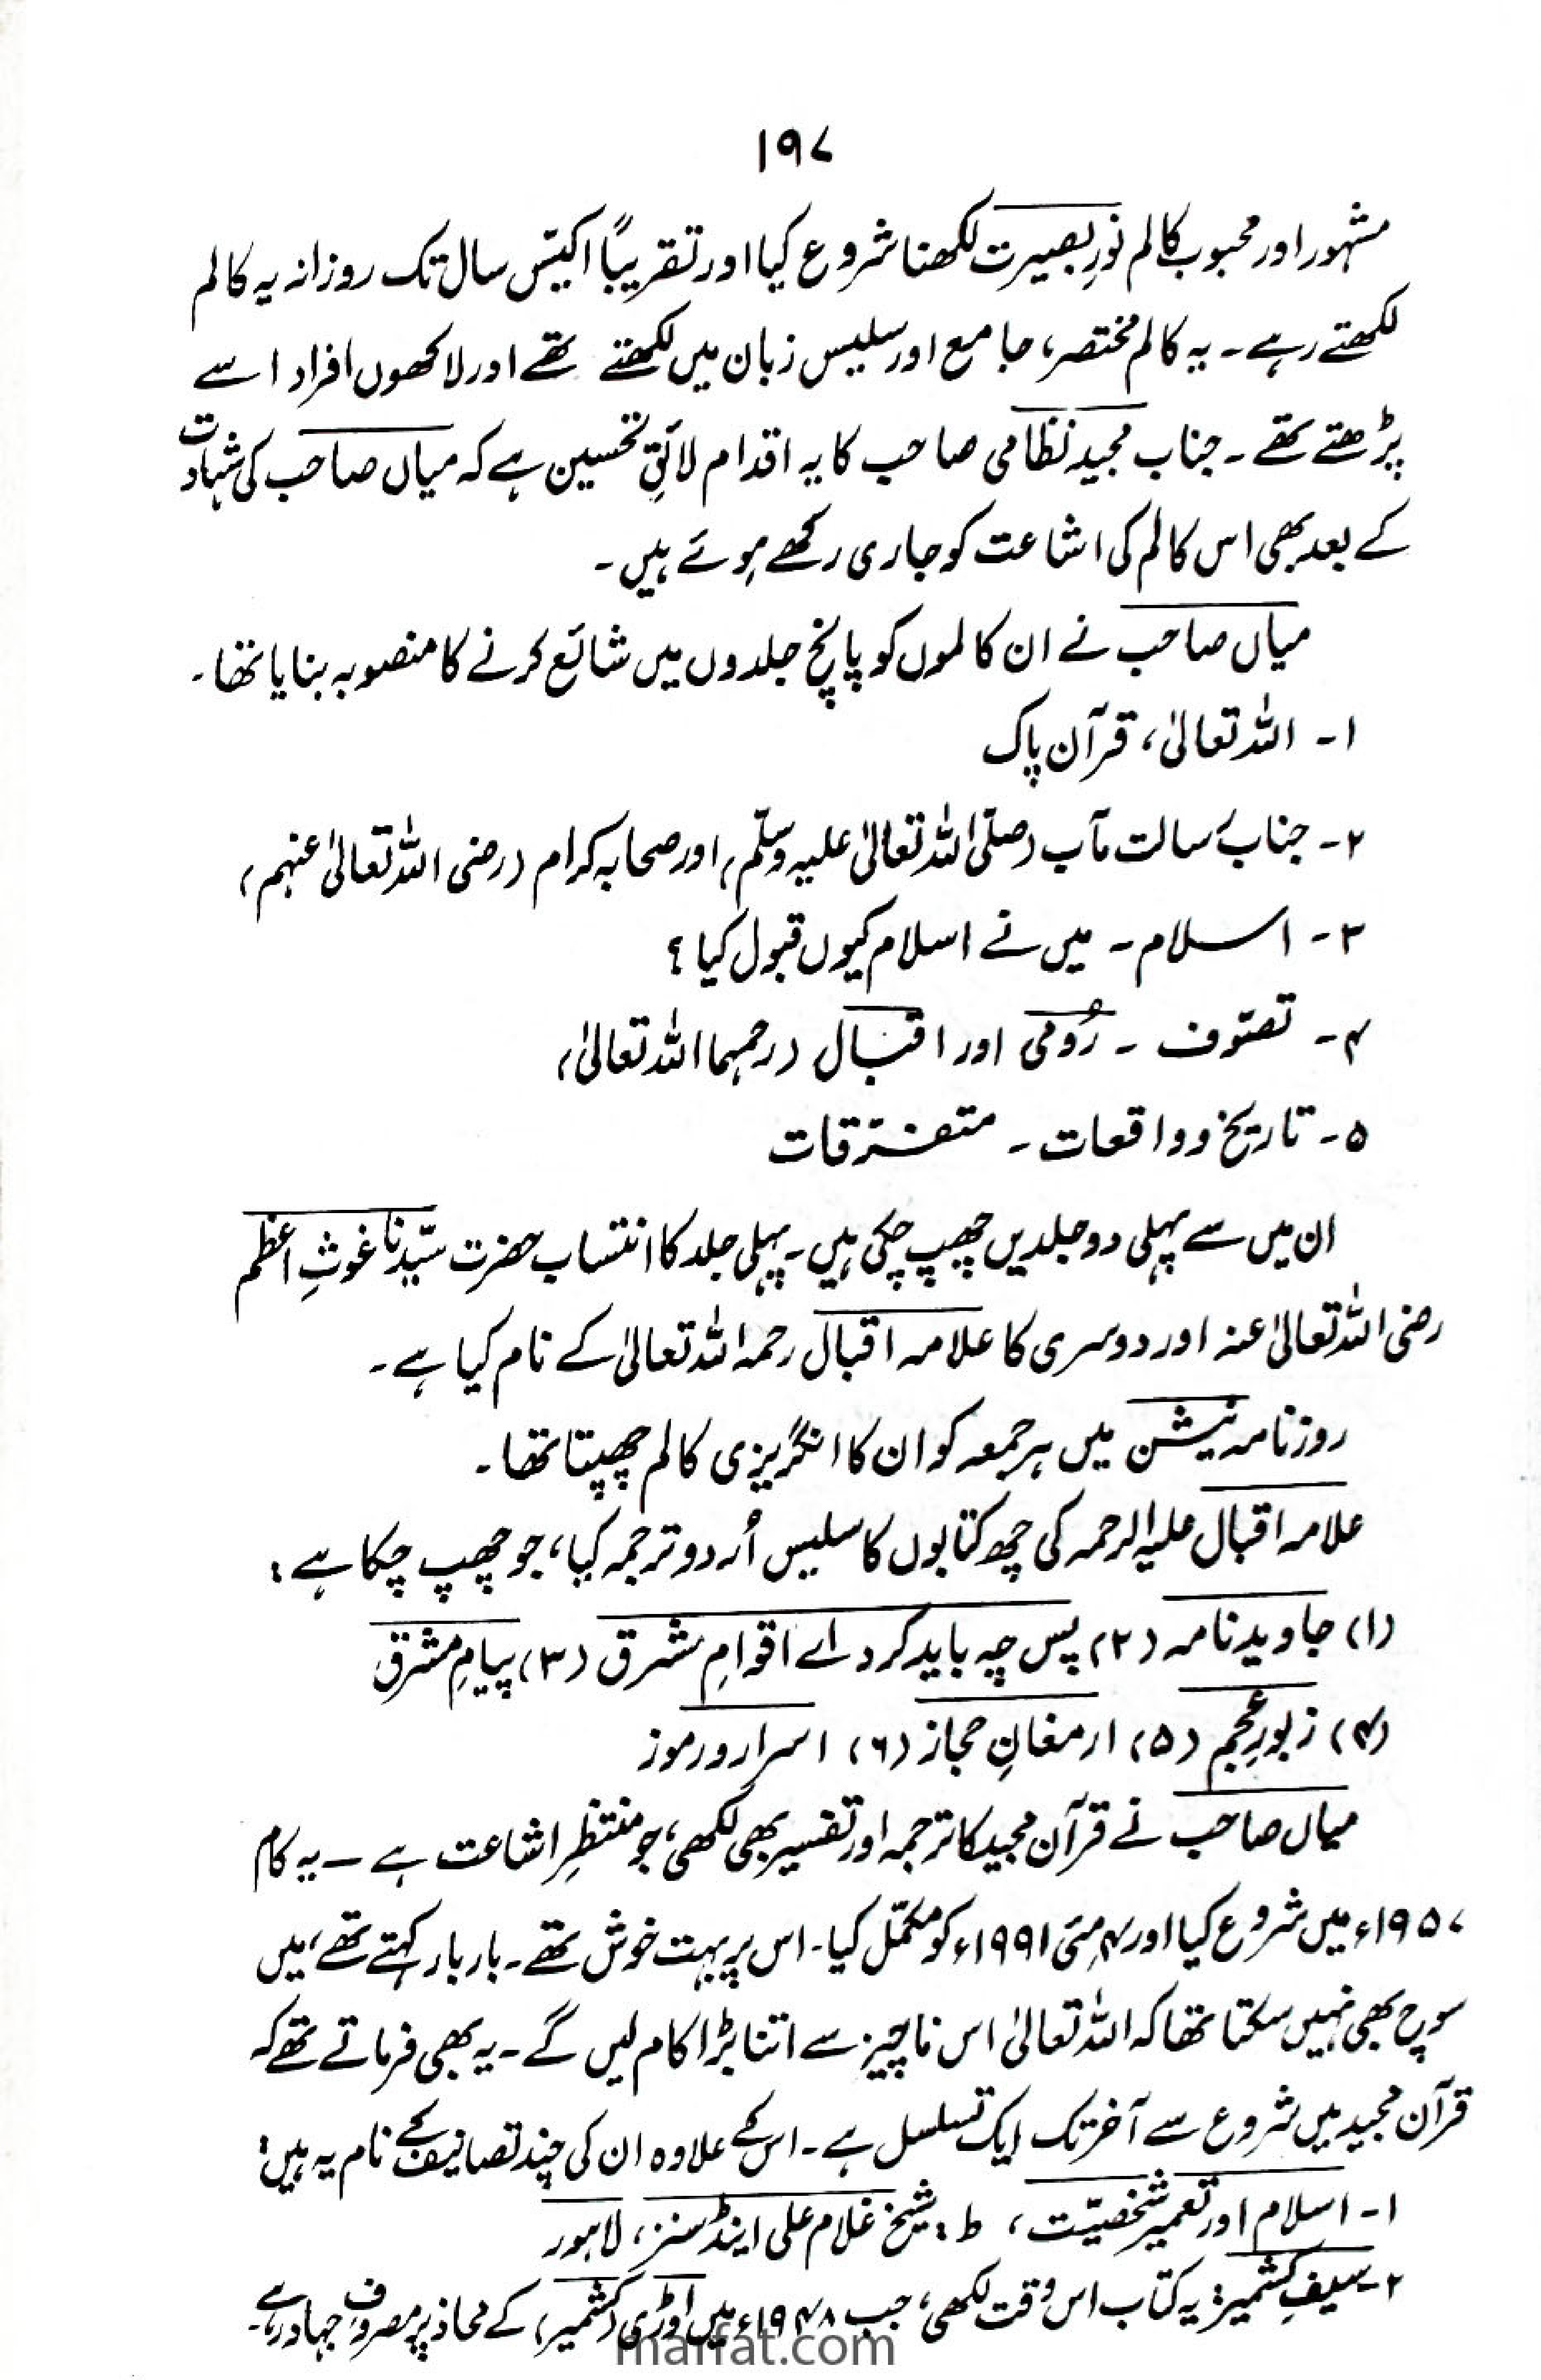 ۱۹۷
مشہور اور محبوب کالم نورِ بصیرت لکھنا شروع کیا اور تقریباً اکیّس سال تک روزانہ یہ کالم
لکھتے رہے۔ یہ کالم مختصر، جامع اور سلیس زبان میں لکھتے تھے اور لاکھوں افراد اسے
پڑھتے تھے۔ جناب مجید نظامی صاحب کا یہ اقدام لائقِ تحسین ہے کہ میاں صاحب کی شہادت
کے بعد بھی اس کالم کی اشاعت کو جاری رکھے ہوئے ہیں۔
میاں صاحب نے ان کالموں کو پانچ جلدوں میں شائع کرنے کا منصوبہ بنایا تھا۔
۱۔ اللہ تعالیٰ، قرآن پاک
۲۔ جناب رسالت مآب (صلّی اللہ تعالیٰ علیہ وسلّم) اور صحابہ کرام (رضی اللہ تعالیٰ عنہم)
۳۔ اسلام۔ میں نے اسلام کیوں قبول کیا؟
۴۔ تصوّف ۔ رُومی اور اقبال (رحمہما اللہ تعالیٰ)
۵۔ تاریخ و واقعات ۔ متفرّقات
ان میں سے پہلی دو جلدیں چھپ چکی ہیں۔ پہلی جلد کا انتساب حضرت سیّدنا غوثِ اعظم
رضی اللہ تعالیٰ عنہ اور دوسری کا علامہ اقبال رحمہ اللہ تعالیٰ کے نام کیا ہے۔
روزنامہ نیشن میں ہر جمعہ کو ان کا انگریزی کالم چھپتا تھا۔
علامہ اقبال علیہ الرحمہ کی چھ کتابوں کا سلیس اُردو ترجمہ کیا، جو چھپ چکا ہے:
(۱) جاوید نامہ (۲) پس چہ باید کرد اے اقوامِ مشرق (۳) پیامِ مشرق
(۴) زبورِ عجم (۵) ارمغانِ حجاز (۶) اسرار و رموز
میاں صاحب نے قرآن مجید کا ترجمہ اور تفسیر بھی لکھی، جو منتظرِ اشاعت ہے — یہ کام
۱۹۵۷ء میں شروع کیا اور ۴ مئی ۱۹۹۱ء کو مکمّل کیا۔ اس پر بہت خوش تھے۔ بار بار کہتے تھے، میں
سوچ بھی نہیں سکتا تھا کہ اللہ تعالیٰ اس ناچیز سے اتنا بڑا کام لیں گے۔ یہ بھی فرماتے تھے کہ
قرآن مجید میں شروع سے آخر تک ایک تسلسل ہے۔ اس کے علاوہ ان کی چند تصانیف کے نام یہ ہیں:
۱۔ اسلام اور تعمیرِ شخصیّت، ط: شیخ غلام علی اینڈ سنز، لاہور
۲۔ سیفِ کشمیر: یہ کتاب اس وقت لکھی، جب ۱۹۴۸ء میں اوڑی (کشمیر) کے محاذ پر مصروفِ جہاد رہے۔
marfat.com